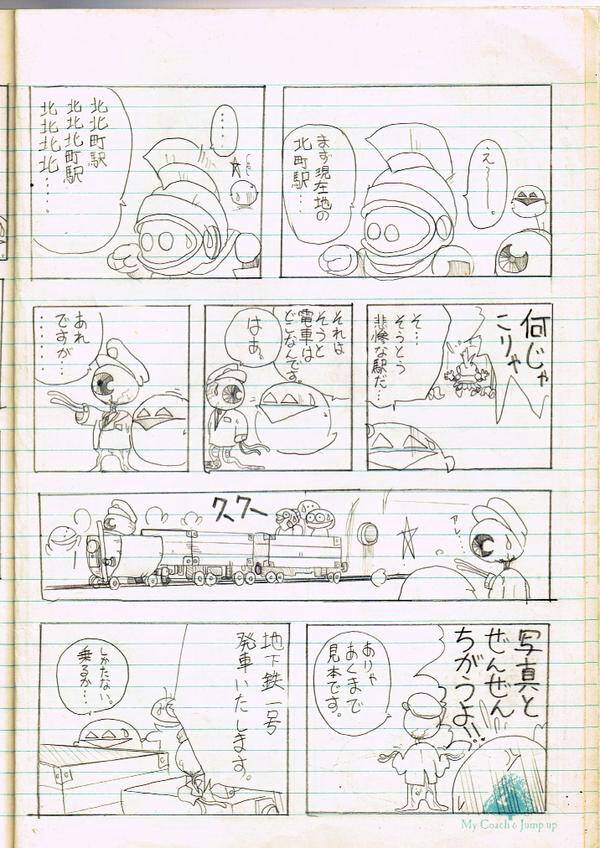 え〜〜。
まず現在地の
北町駅…
・・・・
北北町駅
北北北町駅
北北北北……
何じゃ
こりゃ
そ…
そうとう
悲惨な駅だ…
それは
そうと
電車は
どこなんです。
はあ。
あれ
ですが…
………
アレ…
クークー
写真と
ぜんぜん
ちがうよ!!
ありゃ
あくまで
見本です。
地下鉄一号
発車いたします。
しかたない。
乗るか…
My Coach & Jump up